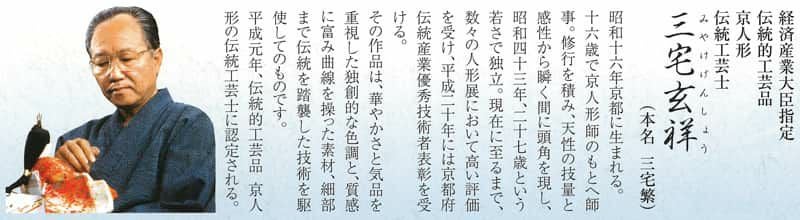 経済産業大臣指定
伝統的工芸品
京人形
伝統工芸士
三宅玄祥
みやけげんしょう
(本名 三宅繁)
昭和十六年京都に生まれる。
十六歳で京人形師のもとへ師
事。修行を積み、天性の技量と
感性から瞬く間に頭角を現し、
昭和四十三年、二十七歳という
若さで独立。現在に至るまで、
数々の人形展において高い評価
を受け、平成二十年には京都府
伝統産業優秀技術者表彰を受
ける。
その作品は、華やかさと気品を
重視した独創的な色調と、質感
に富み曲線を操った素材、細部
まで伝統を踏襲した技術を駆
使してのものです。
平成元年、伝統的工芸品 京人
形の伝統工芸士に認定される。